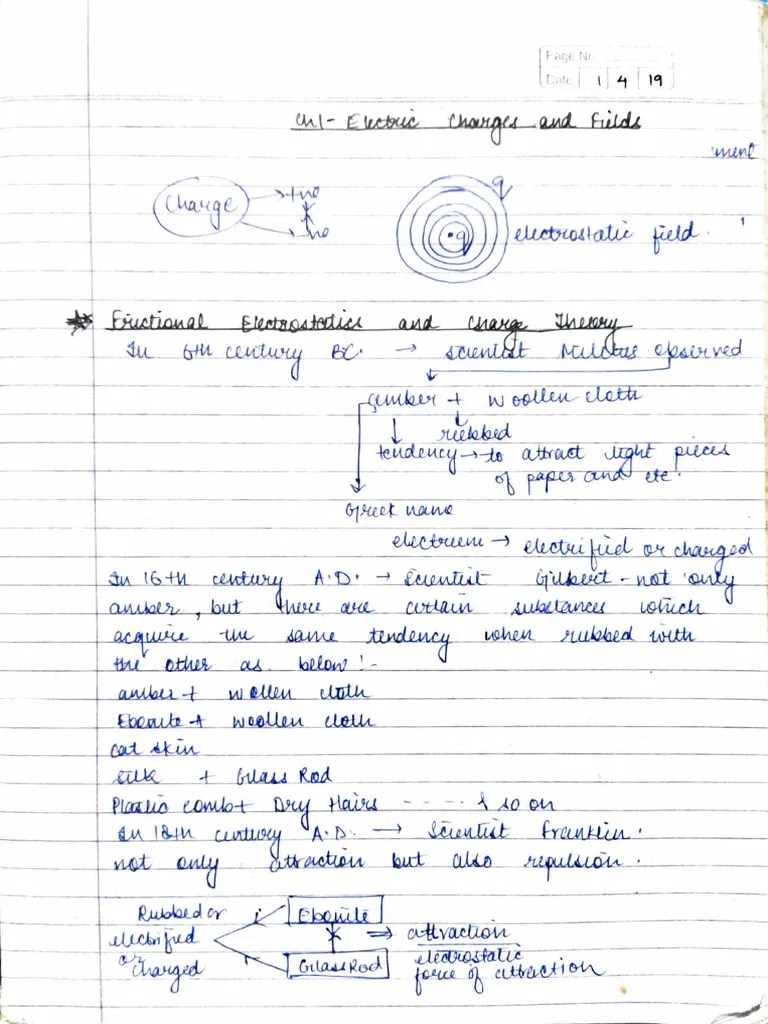 Page No.
Date 1 4 19
Ch1- Electric Charges and Fields
ment
Charge
+ve
-ve
q
q
electrostatic field.
Frictional Electrostatics and Charge Theory
In 6th century BC. → Scientist Miletus observed
amber + woollen cloth
rubbed
tendency → to attract light pieces
of paper and etc.
Greek name
electrum → electrified or charged
In 16th century A.D. → Scientist Gilbert - not only
amber, but there are certain substances which
acquire the same tendency when rubbed with
the other as below :-
amber + wollen cloth
Ebonite + woollen cloth
cat skin
silk + Glass Rod
Plastic comb + Dry Hairs - - - - & so on
In 18th century A.D. → Scientist Franklin.
not only attraction but also repulsion.
Rubbed or
electrified
or
charged
Ebonite
Glass Rod
⇒ attraction
electrostatic
force of attraction